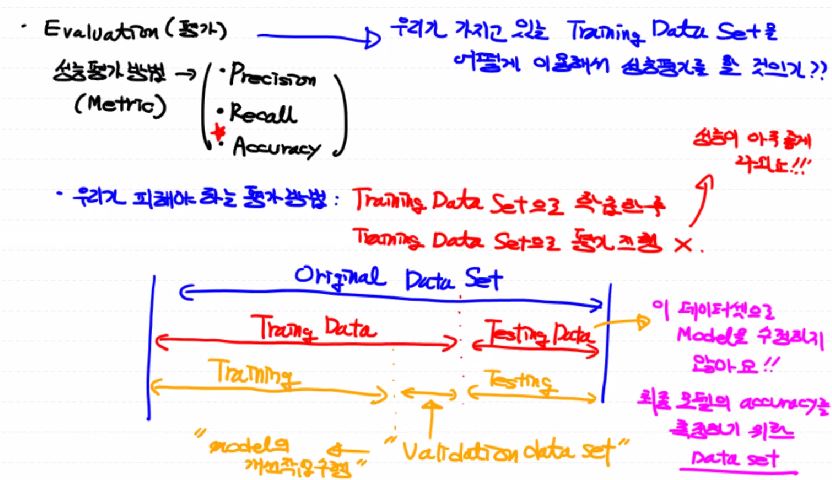 · Evaluation (평가) → 우리가 가지고 있는 Training Data Set을
어떻게 이용해서 성능평가를 할 것인가??
성능평가 방법 → · Precision
(Metric)
· Recall
★· Accuracy
성능이 아주 좋게
나와요!!!
· 우리가 피해야 하는 평가방법 : Training Data Set으로 학습한 후
Training Data Set으로 평가 진행 X.
Original Data Set
Traing Data
Testing Data
이 데이터셋으로
Model을 수정하지
않아요!!
Training
Testing
최종 모델의 accuracy를
측정하기 위한
Data set
"model의
개선작업수행"
"Validation data set"